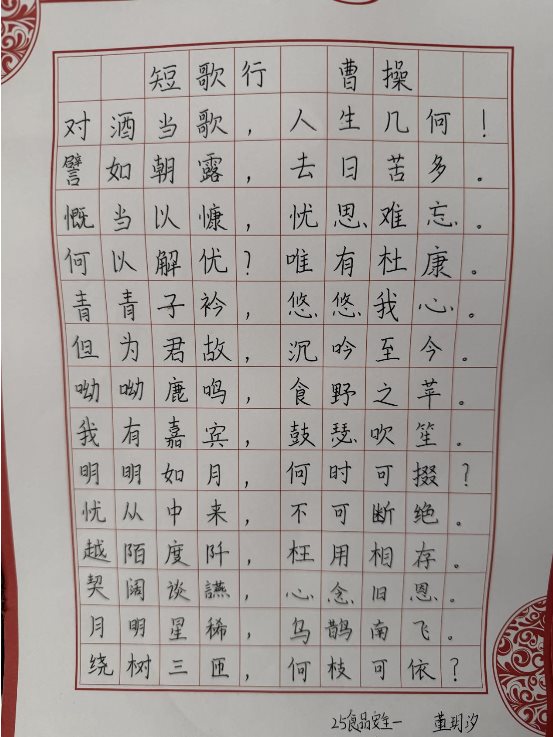 短歌行 曹操
对酒当歌，人生几何！
譬如朝露，去日苦多。
慨当以慷，忧思难忘。
何以解忧？唯有杜康。
青青子衿，悠悠我心。
但为君故，沉吟至今。
呦呦鹿鸣，食野之苹。
我有嘉宾，鼓瑟吹笙。
明明如月，何时可掇？
忧从中来，不可断绝。
越陌度阡，枉用相存。
契阔谈讌，心念旧恩。
月明星稀，乌鹊南飞。
绕树三匝，何枝可依？
25食品安全一 董玥汐